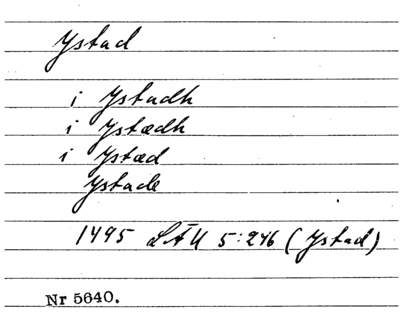 Ystad
i Ystadh
i Ystædh
i Ystæd
Ystade
1495 LÄU 5:246 (Ystad)
Nr 5640.